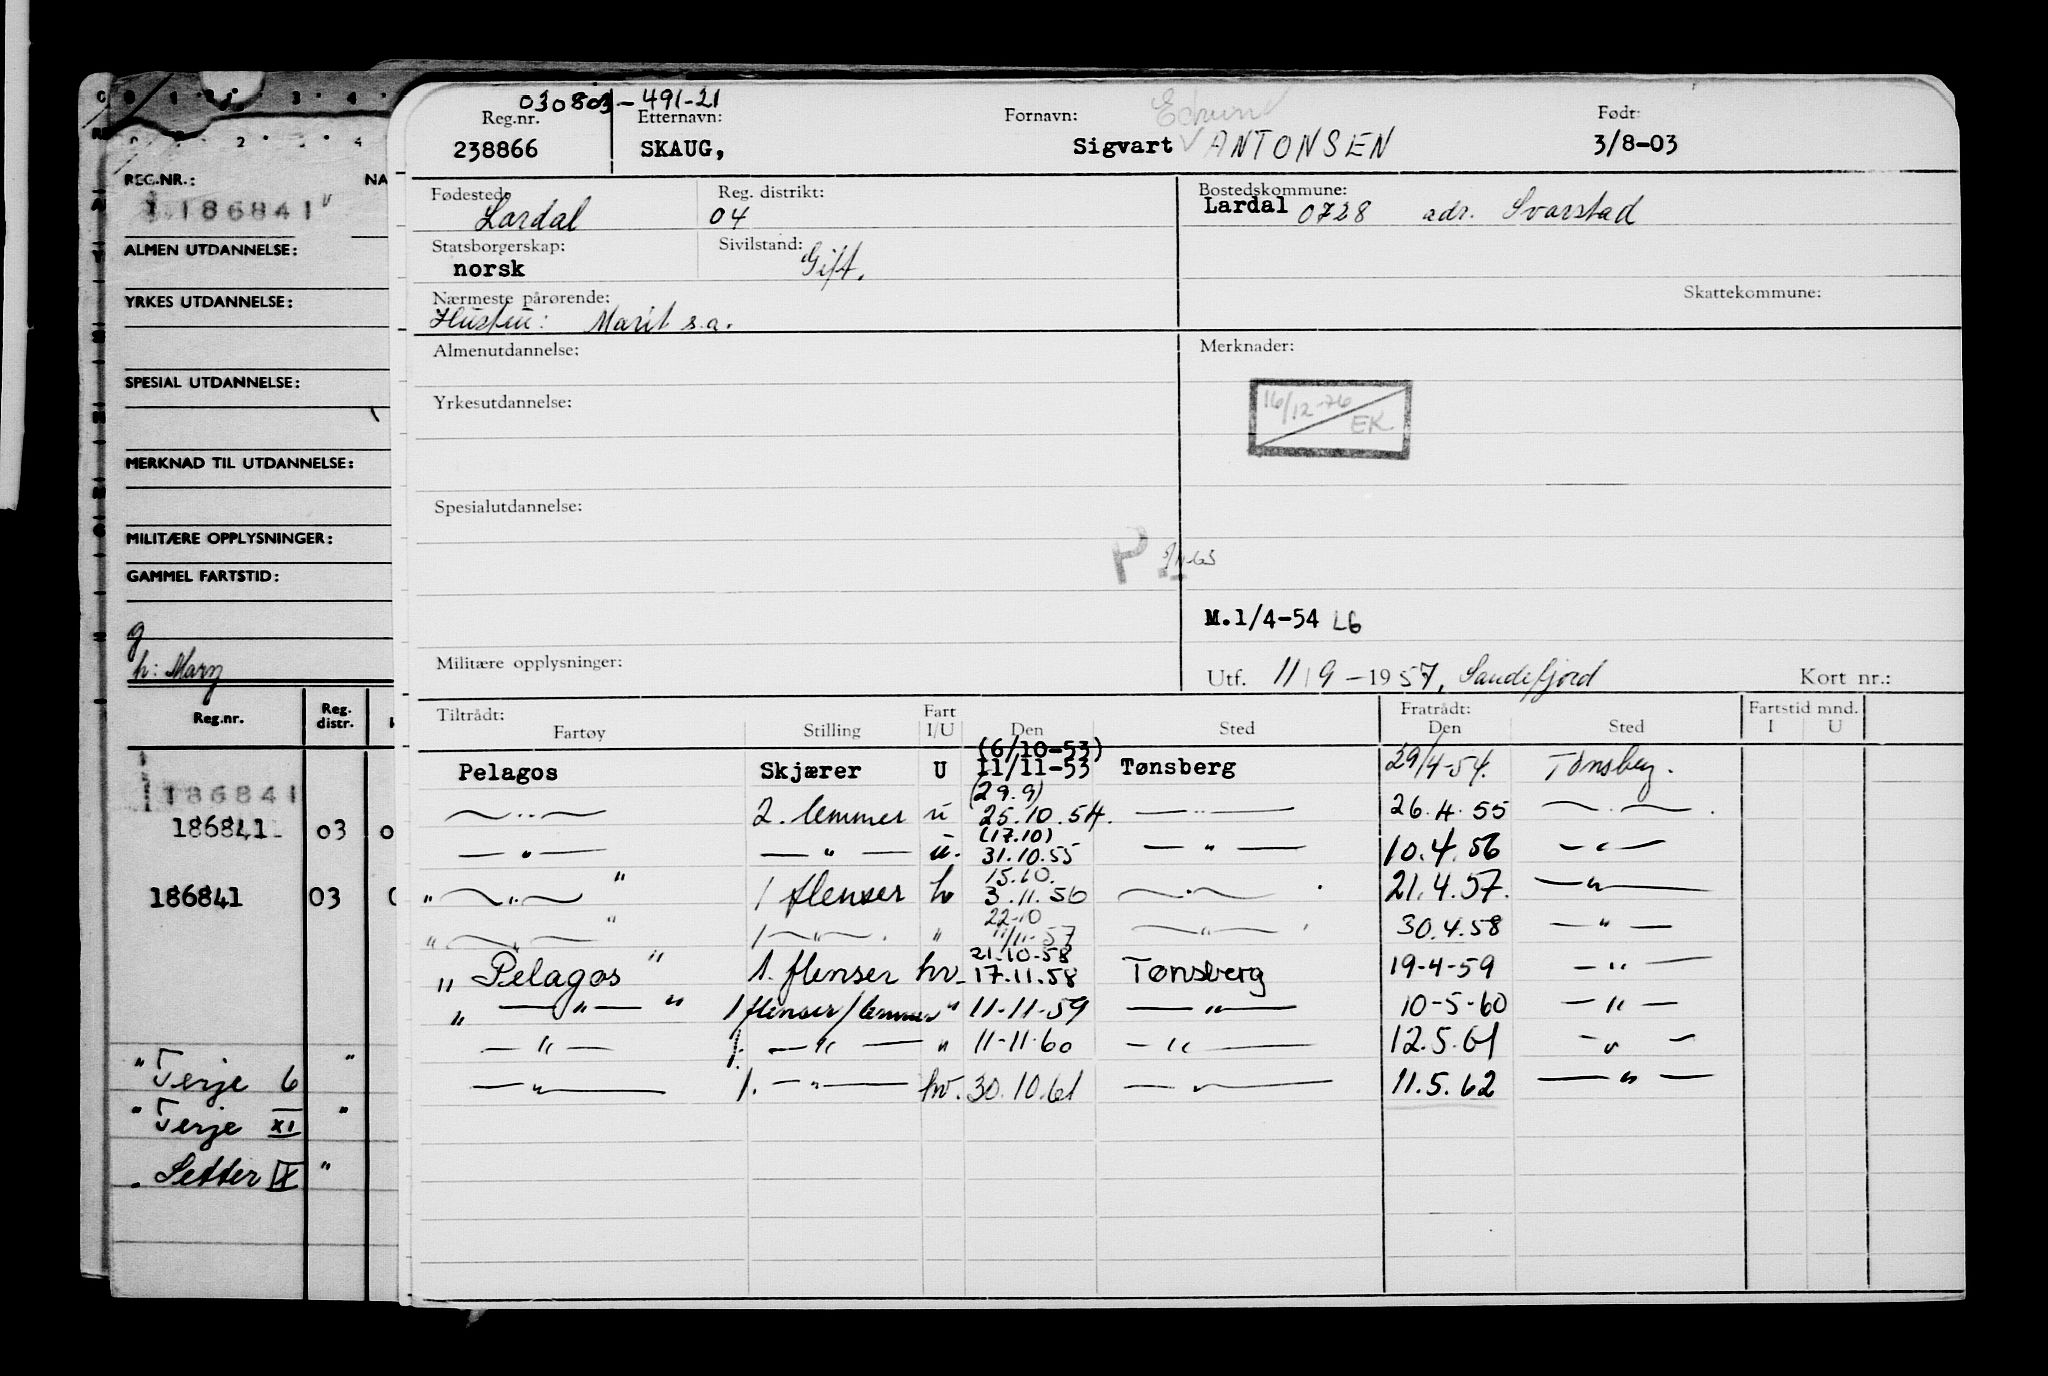 C 0 1 3 4
0 2 4
REG.NR.: NA
186841
ALMEN UTDANNELSE:
YRKES UTDANNELSE:
SPESIAL UTDANNELSE:
MERKNAD TIL UTDANNELSE:
MILITÆRE OPPLYSNINGER:
GAMMEL FARTSTID:
g
h: Mary
Reg.nr. Reg. distr.
186841
186841 03 0
186841 03
"Terje 6 "
"Terje XI "
Setter IX "
030803-491-21
Reg.nr. Etternavn: Fornavn: Født:
238866 SKAUG, Sigvart ANTONSEN 3/8-03
Fødested: Reg. distrikt: Bostedskommune:
Lardal 04 Lardal 0728 adr. Svarstad
Statsborgerskap: Sivilstand:
norsk Gift.
Nærmeste pårørende: Skattekommune:
Hustru: Marit s.a.
Almenutdannelse: Merknader:
16/12-76 EK
Yrkesutdannelse:
Spesialutdannelse:
P
M.1/4-54 LG
Militære opplysninger: Utf. 11/9-1957, Sandefjord Kort nr.:
Tiltrådt: Fart Fratrådt: Fartstid mnd.
Fartøy Stilling I/U Den Sted Den Sted I U
(6/10-53)
Pelagos Skjærer U 11/11-53 Tønsberg 29/4-54. Tønsberg.
(29.9)
—"— 2. lemmer u 25.10.54. —"— 26.4.55 —"—
(17.10)
—"— —"— u. 31.10.55 —"— 10.4.56 —"—
15.10.
"—"—" 1 flenser hv 3.11.56 —"— 21.4.57. —"—
22-10
"—"—" 1—"—. " 11/11-57 —"— 30.4.58 —"—
21.10-58
"Pelagos" 1. flenser hv. 17.11.58 Tønsberg 19-4-59 —"—
"—"—" 1 flenser/lemmer " 11-11-59 —"— 10-5-60 —"—
—"— 1. —"— " 11-11-60 —"— 12.5.61 —"—
—"— 1. —"— hv. 30.10.61 —"— 11.5.62 —"—